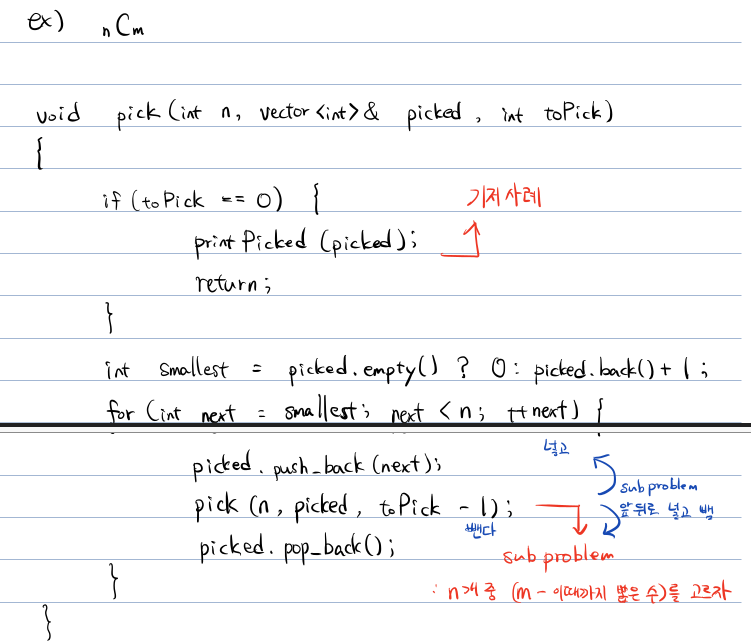 ex) nCm
void pick (int n, vector<int>& picked, int toPick)
{
if (toPick == 0) {
기저 사례
print Picked (picked);
return;
}
int smallest = picked.empty() ? 0 : picked.back() + 1;
for (int next = smallest; next < n; ++next) {
넣고
picked.push_back(next);
sub problem
pick (n, picked, toPick - 1);
앞뒤로 넣고 뺌
뺀다
picked.pop_back();
sub problem
: n개 중 (m - 이때까지 뽑은 수)를 고르자
}
}